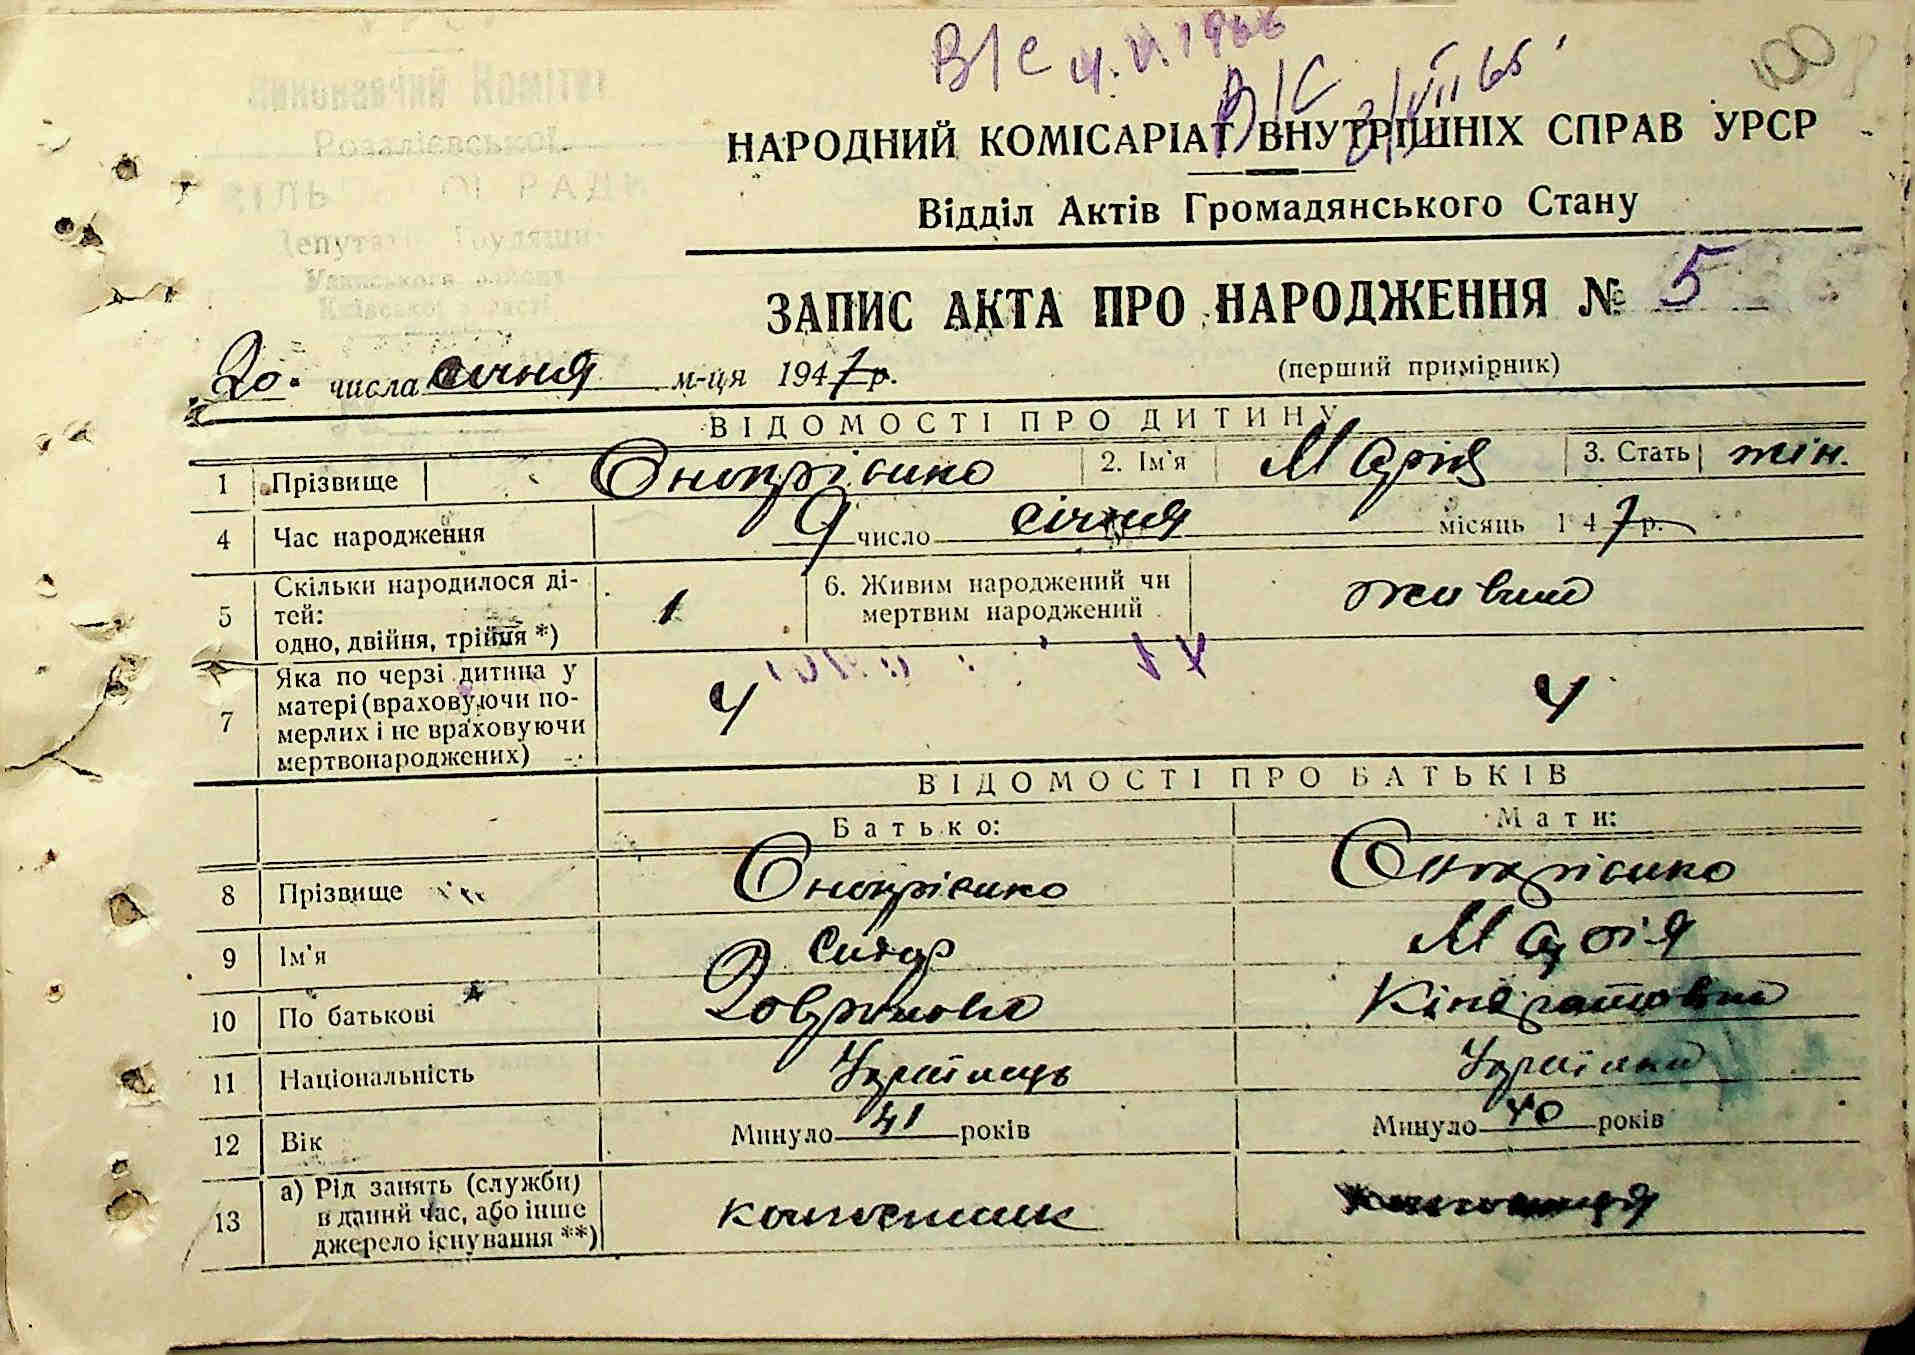 В/С 4.VI.1966
В/С 3/VII 65
100
Виконавчий Комітет
Розаліевської
СІЛЬСЬКОЇ РАДИ
Депутатів Трудящих
НАРОДНИЙ КОМІСАРІАТ ВНУТРІШНІХ СПРАВ УРСР
Відділ Актів Громадянського Стану
ЗАПИС АКТА ПРО НАРОДЖЕННЯ № 5
(перший примірник)
20. числа січня м-ця 1947 р.
ВІДОМОСТІ ПРО ДИТИНУ
1 Прізвище Онопрієнко 2. Ім'я Марія 3. Стать жін.
4 Час народження 9 число січня місяць 1 47 р.
5 Скільки народилося ді-
тей:
одно, двійня, трійня *) 1 6. Живим народжений чи
мертвим народжений живим
7 Яка по черзі дитина у
матері (враховуючи по-
мерлих і не враховуючи
мертвонароджених) 4 4
ВІДОМОСТІ ПРО БАТЬКІВ
Батько: Мати:
8 Прізвище Онопрієнко Онопрієнко
9 Ім'я Марія
10 По батькові Кіндратовна
11 Національність Українець Українка
12 Вік Минуло 41 років Минуло 40 років
13 а) Рід занять (служби)
в даний час, або інше
джерело існування **) колгоспник